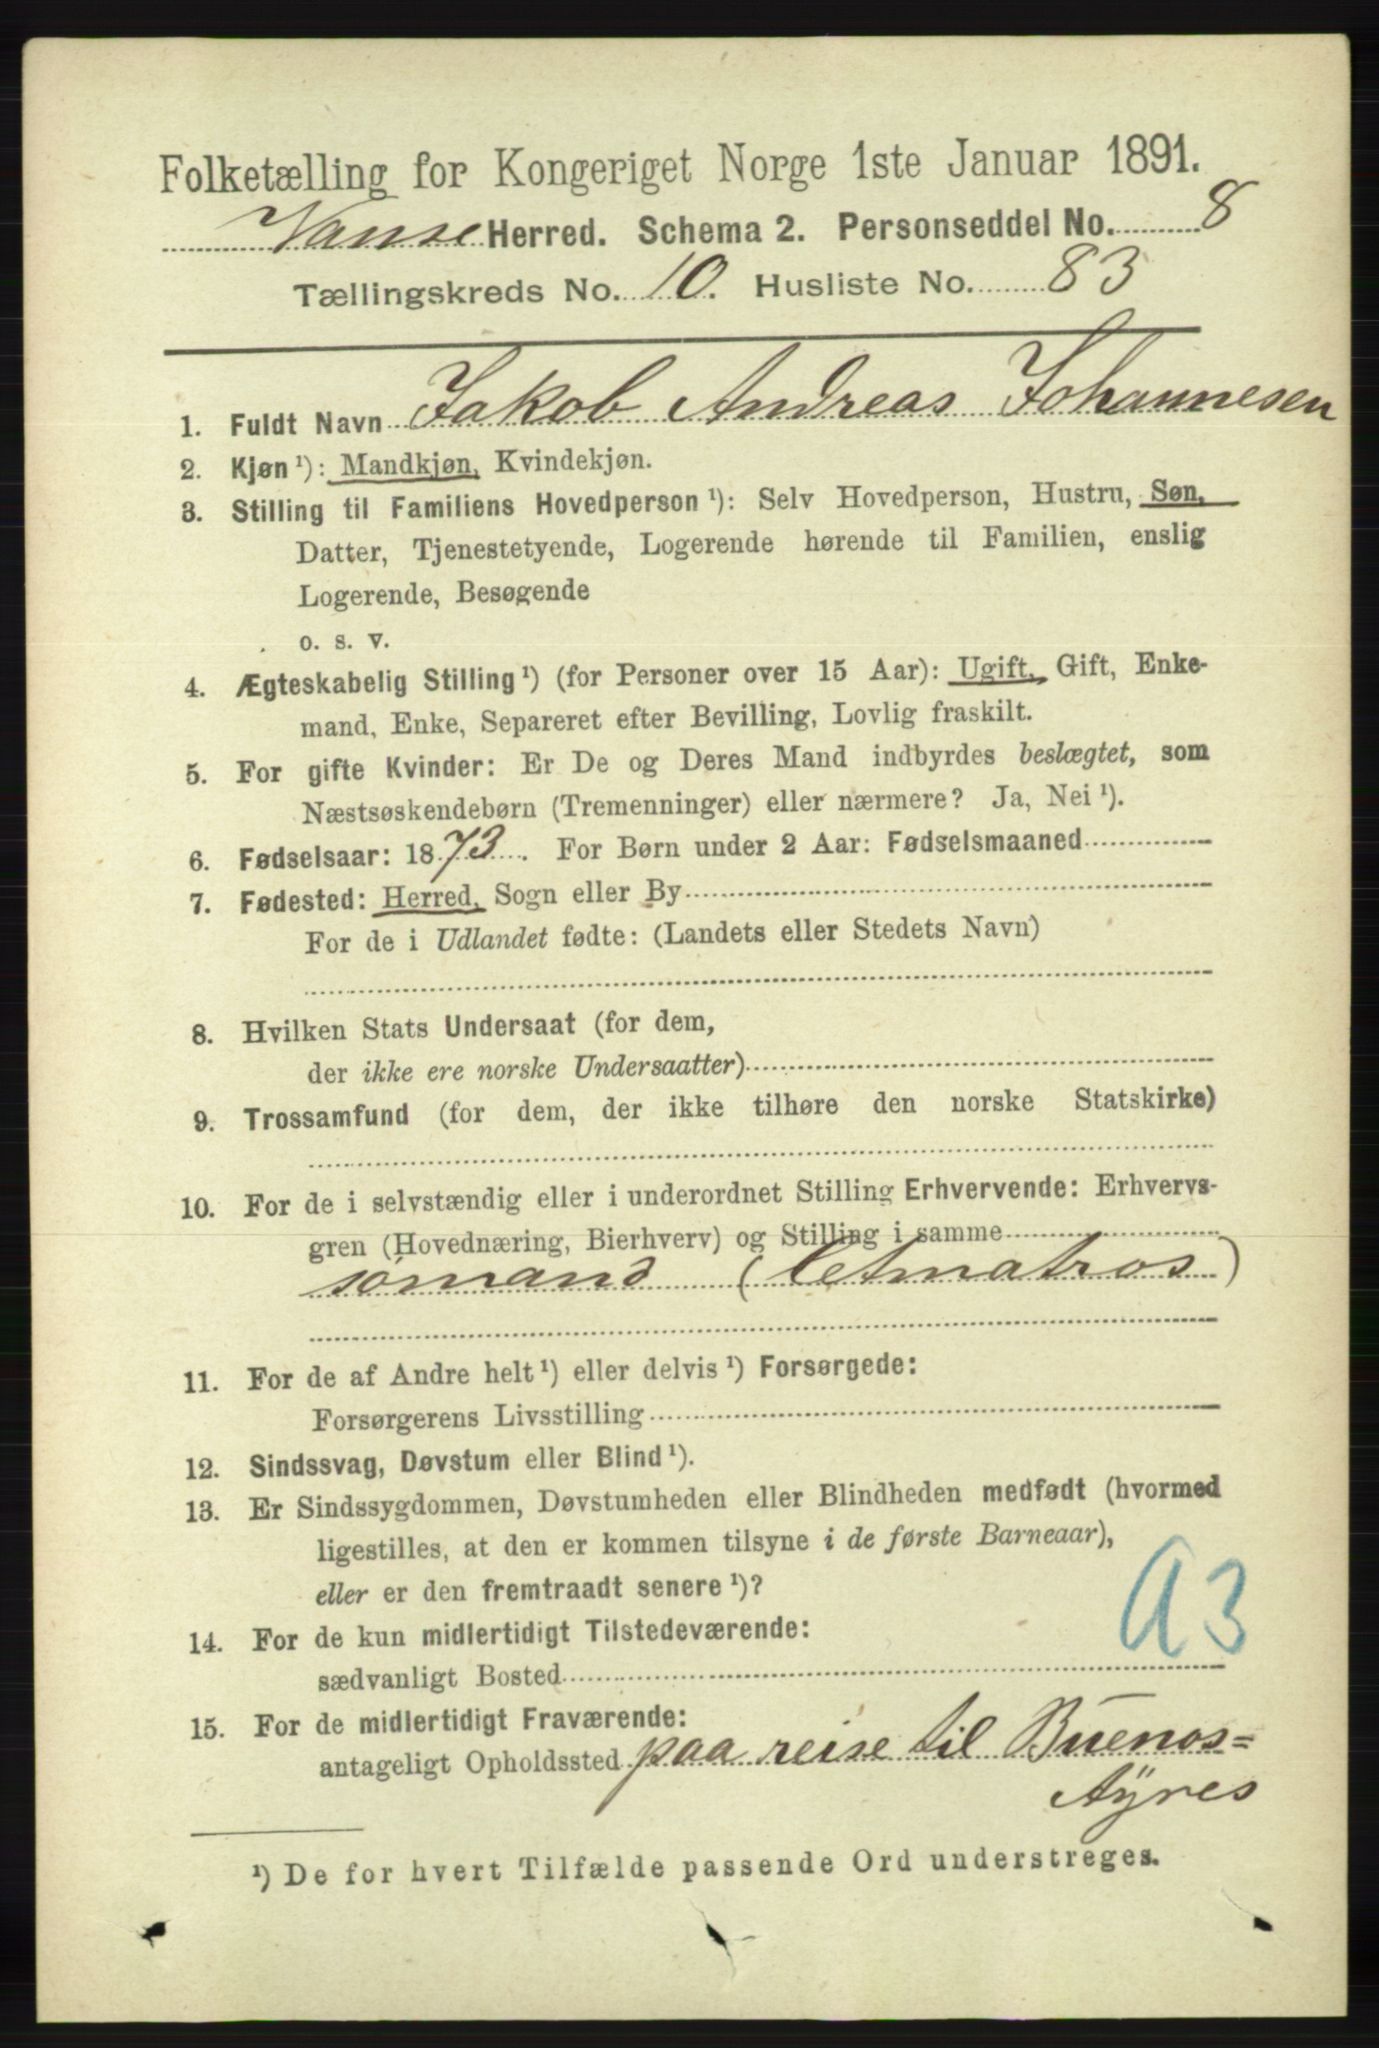 Folketælling for Kongeriget Norge 1ste Januar 1891.
Vanse Herred. Schema 2. Personseddel No. 8
Tællingskreds No. 10. Husliste No. 83
1. Fuldt Navn Jakob Andreas Johannesen
2. Kjøn ¹): Mandkjøn, Kvindekjøn.
3. Stilling til Familiens Hovedperson ¹): Selv Hovedperson, Hustru, Søn,
Datter, Tjenestetyende, Logerende hørende til Familien, enslig
Logerende, Besøgende
o. s. v.
4. Ægteskabelig Stilling ¹) (for Personer over 15 Aar): Ugift, Gift, Enke-
mand, Enke, Separeret efter Bevilling, Lovlig fraskilt.
5. For gifte Kvinder: Er De og Deres Mand indbyrdes beslægtet, som
Næstsøskendebørn (Tremenninger) eller nærmere? Ja, Nei ¹).
6. Fødselsaar: 1873. For Børn under 2 Aar: Fødselsmaaned
7. Fødested: Herred, Sogn eller By
For de i Udlandet fødte: (Landets eller Stedets Navn)
8. Hvilken Stats Undersaat (for dem,
der ikke ere norske Undersaatter)
9. Trossamfund (for dem, der ikke tilhøre den norske Statskirke)
10. For de i selvstændig eller i underordnet Stilling Erhvervende: Erhvervs-
gren (Hovednæring, Bierhverv) og Stilling i samme
sømand (letmatros)
11. For de af Andre helt ¹) eller delvis ¹) Forsørgede:
Forsørgerens Livsstilling
12. Sindssvag, Døvstum eller Blind ¹).
13. Er Sindssygdommen, Døvstumheden eller Blindheden medfødt (hvormed
ligestilles, at den er kommen tilsyne i de første Barneaar),
eller er den fremtraadt senere ¹)?
A3
14. For de kun midlertidigt Tilstedeværende:
sædvanligt Bosted
15. For de midlertidigt Fraværende:
antageligt Opholdssted paa reise til Buenos=
Ayres
¹) De for hvert Tilfælde passende Ord understreges.